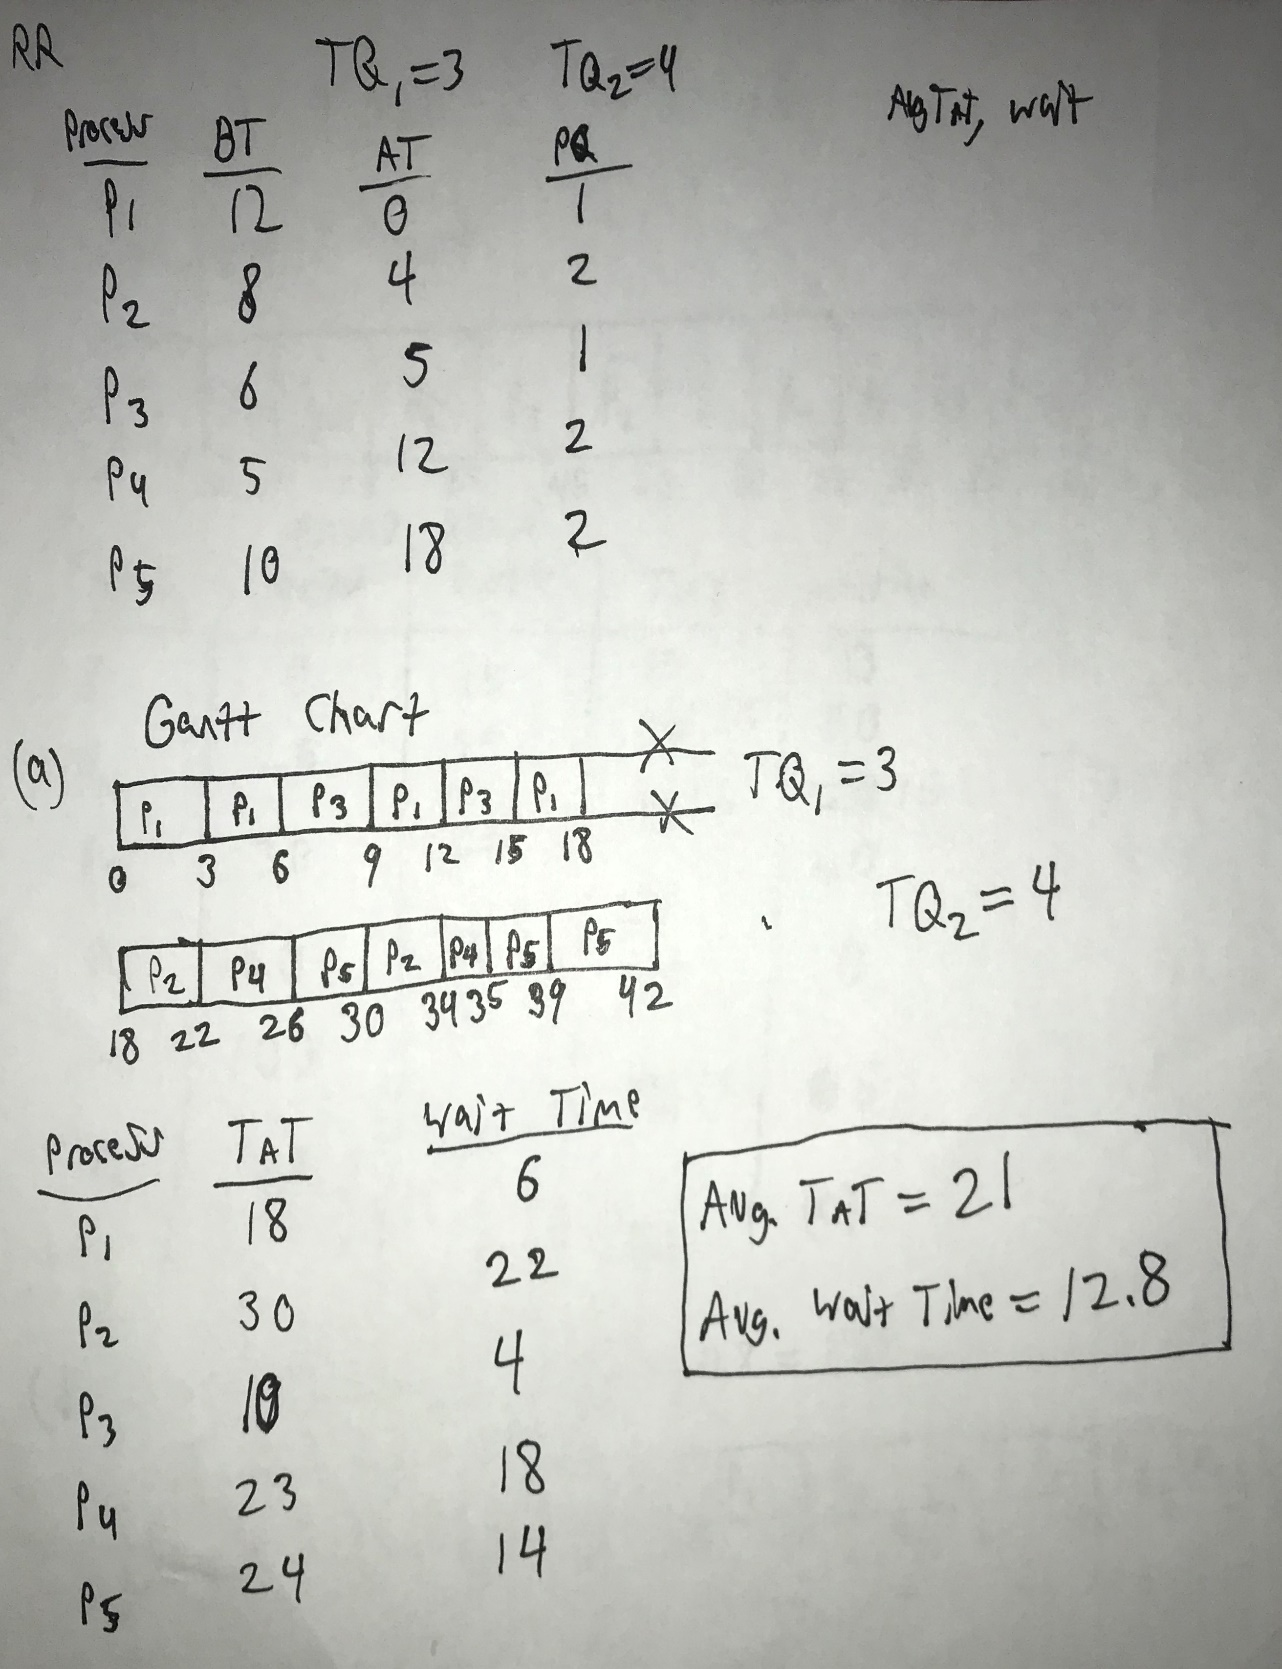 RR
TQ₁=3 TQ₂=4
Avg TAT, wait
Process BT AT PQ
P1 12 0 1
P2 8 4 2
P3 6 5 1
P4 5 12 2
P5 10 18 2
Gantt Chart
(a)
P1 P1 P3 P1 P3 P1 TQ₁=3
0 3 6 9 12 15 18
TQ₂=4
P2 P4 P5 P2 P4 P5 P5
18 22 26 30 34 35 39 42
Process TAT Wait Time
P1 18 6
P2 30 22
P3 10 4
P4 23 18
P5 24 14
Avg. TAT = 21
Avg. Wait Time = 12.8